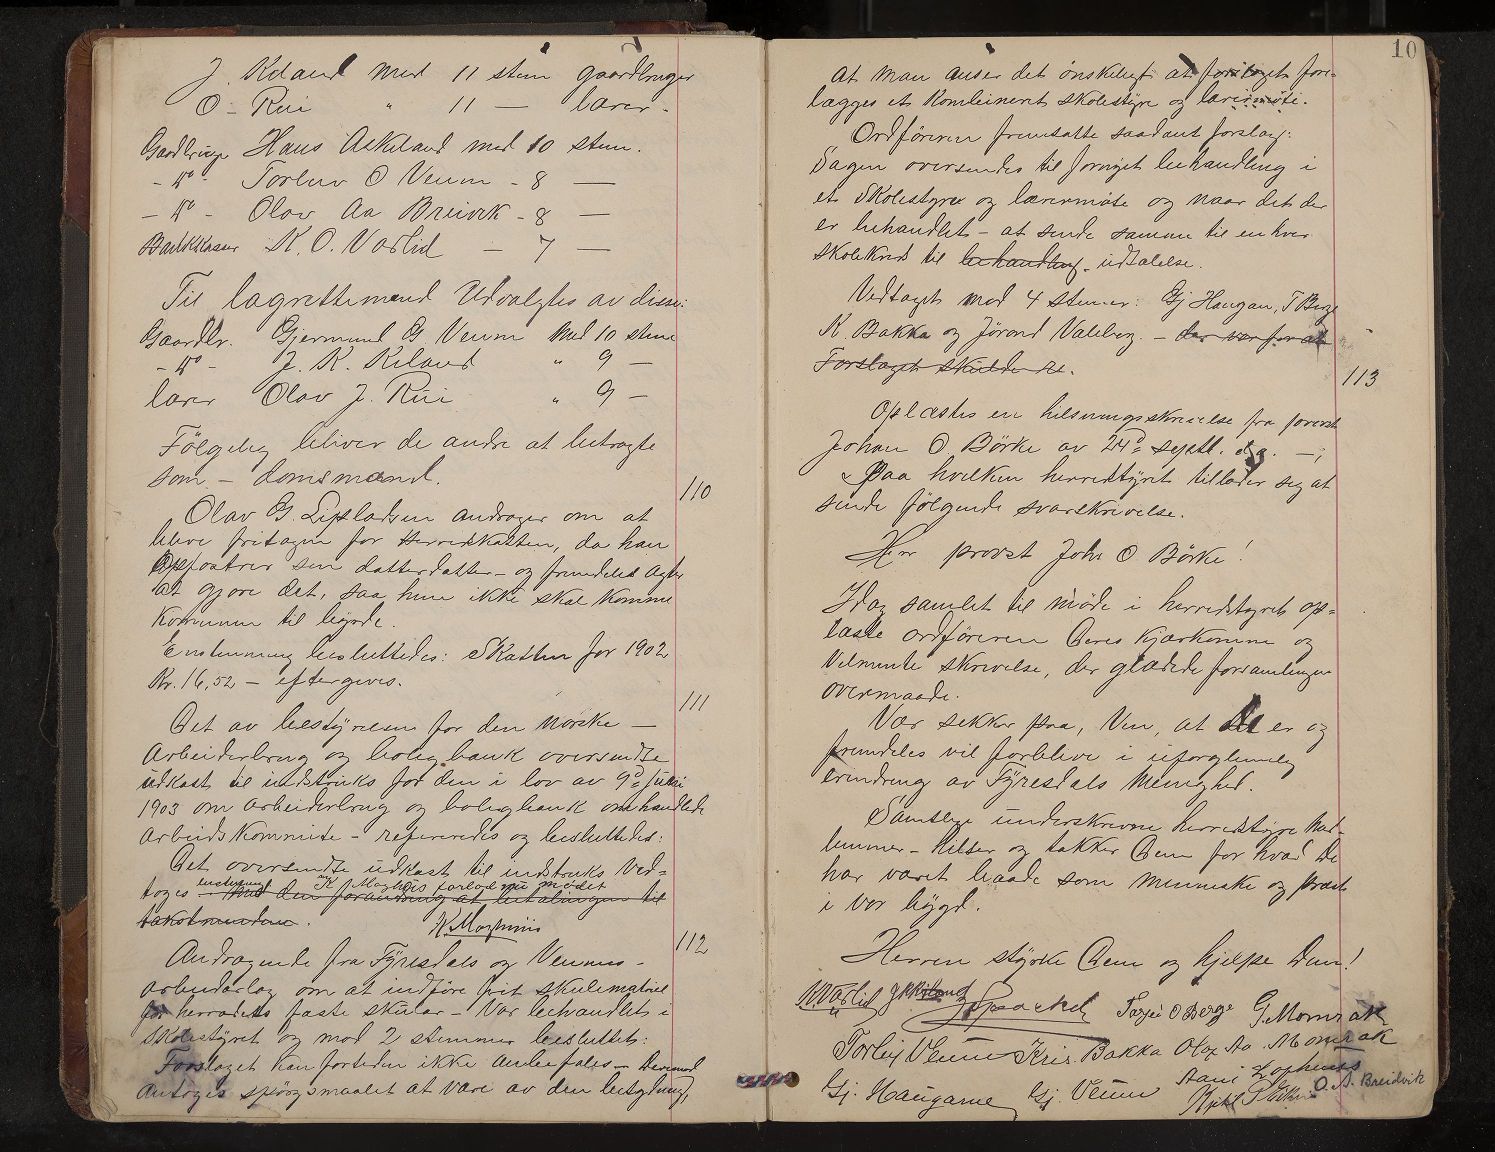 J. Kiland med 11 stem gaardbruger
O – Rui " 11 — lærer –
Gaardbruger Hans Askeland med 10 stem.
– do – Torleiv O Veum – 8 —
– do – Olav Aa Breivik – 8 —
Bankkasser K. O. Varlid — 7 —
Til lagrettemænd Udvalgtes av disse:
Gaardbr. Gjermund G. Veum med 10 stem
– do – J. K. Kiland " 9 —
lærer Olav J. Rui " 9 —
Følgelig bliver de andre at betragte
som – domsmænd.
110
Olav G. Lipsladsen andrager om at
blive fritagen for Herredskatten, da han
Opfostrer sin datterdatter – og fremdeles agter
at gjøre det, saa hun ikke skal komme
Kommunen til byrde.
Enstemmig besluttedes: Skatten for 1902
Kr. 16,52 – eftergives.
111
Det av bestyrelsen for den Norske —
Arbeiderbrug og boligbank oversendte
udkast til indstruks for den i lov av 9de juni
1903 om arbeiderbrug og boligbank omhandlede
Arbeidskommite – refereredes og besluttedes:
Det oversendte udkast til indstruks ved=
toges enstemmig K Moghus forlod nu mødet
med den forandring at betalingen til
takstmændene. K. Moghuus
112
Andragende fra Fyresdals og Veums –
arbeidarlag om at indføre frit skulemateriel
for herradets faste skular – Var behandlet i
Skolestyret og med 2 stemmer besluttet:
Forslaget kan fortiden ikke anbefales – Derimod
Antoges spørgsmaalet at være av den betydning,
10
at man anser det ønskeligt at forslaget fore=
lægges et kombineret skolestyre og lærermøte.
Ordføreren fremsatte saadant forslag:
Sagen oversendes til fornyet behandling i
et Skolestyre og lærermøte og naar det der
er behandlet – at sende samme til enhver
skolekreds til behandling. udtalelse.
Vedtaget med 4 stemer: Gj Haugan, T Berge
K. Bakka og Jørand Valeberg. – der var for at
Forslaget skulde
113
Oplæstes en hilsningsskrivelse fra provst
Johan O Børke av 24de septbr. d.a. —;
Paa hvilken herredstyret tillader sig at
sende følgende svarskrivelse.
Herr provst Johs O Børke!
Idag samlet til møde i herredstyret op=
læste ordføreren Deres kjærkomne og
Velmente skrivelse, der glædede forsamlingen
overmaade.
Vær sikker paa, Ven, at De er og
fremdeles vil forblive i uforglemelig
erindring av Fyresdals Menighed.
Samtlige underskrevne herredstyre Med-
lemmer – hilser og takker Dem for hvad De
har været baade som menneske og præst
i vor bygd.
Herren styrke Dem og hjelpe Dem!
K. Varlid J K Kiland Tarjei O Berge G. Momrak
Torleiv Veum Kris. Bakka Olav Aa. Momrak
Gj. Haugane Gj. Veum Aani
O. A. Breidvik